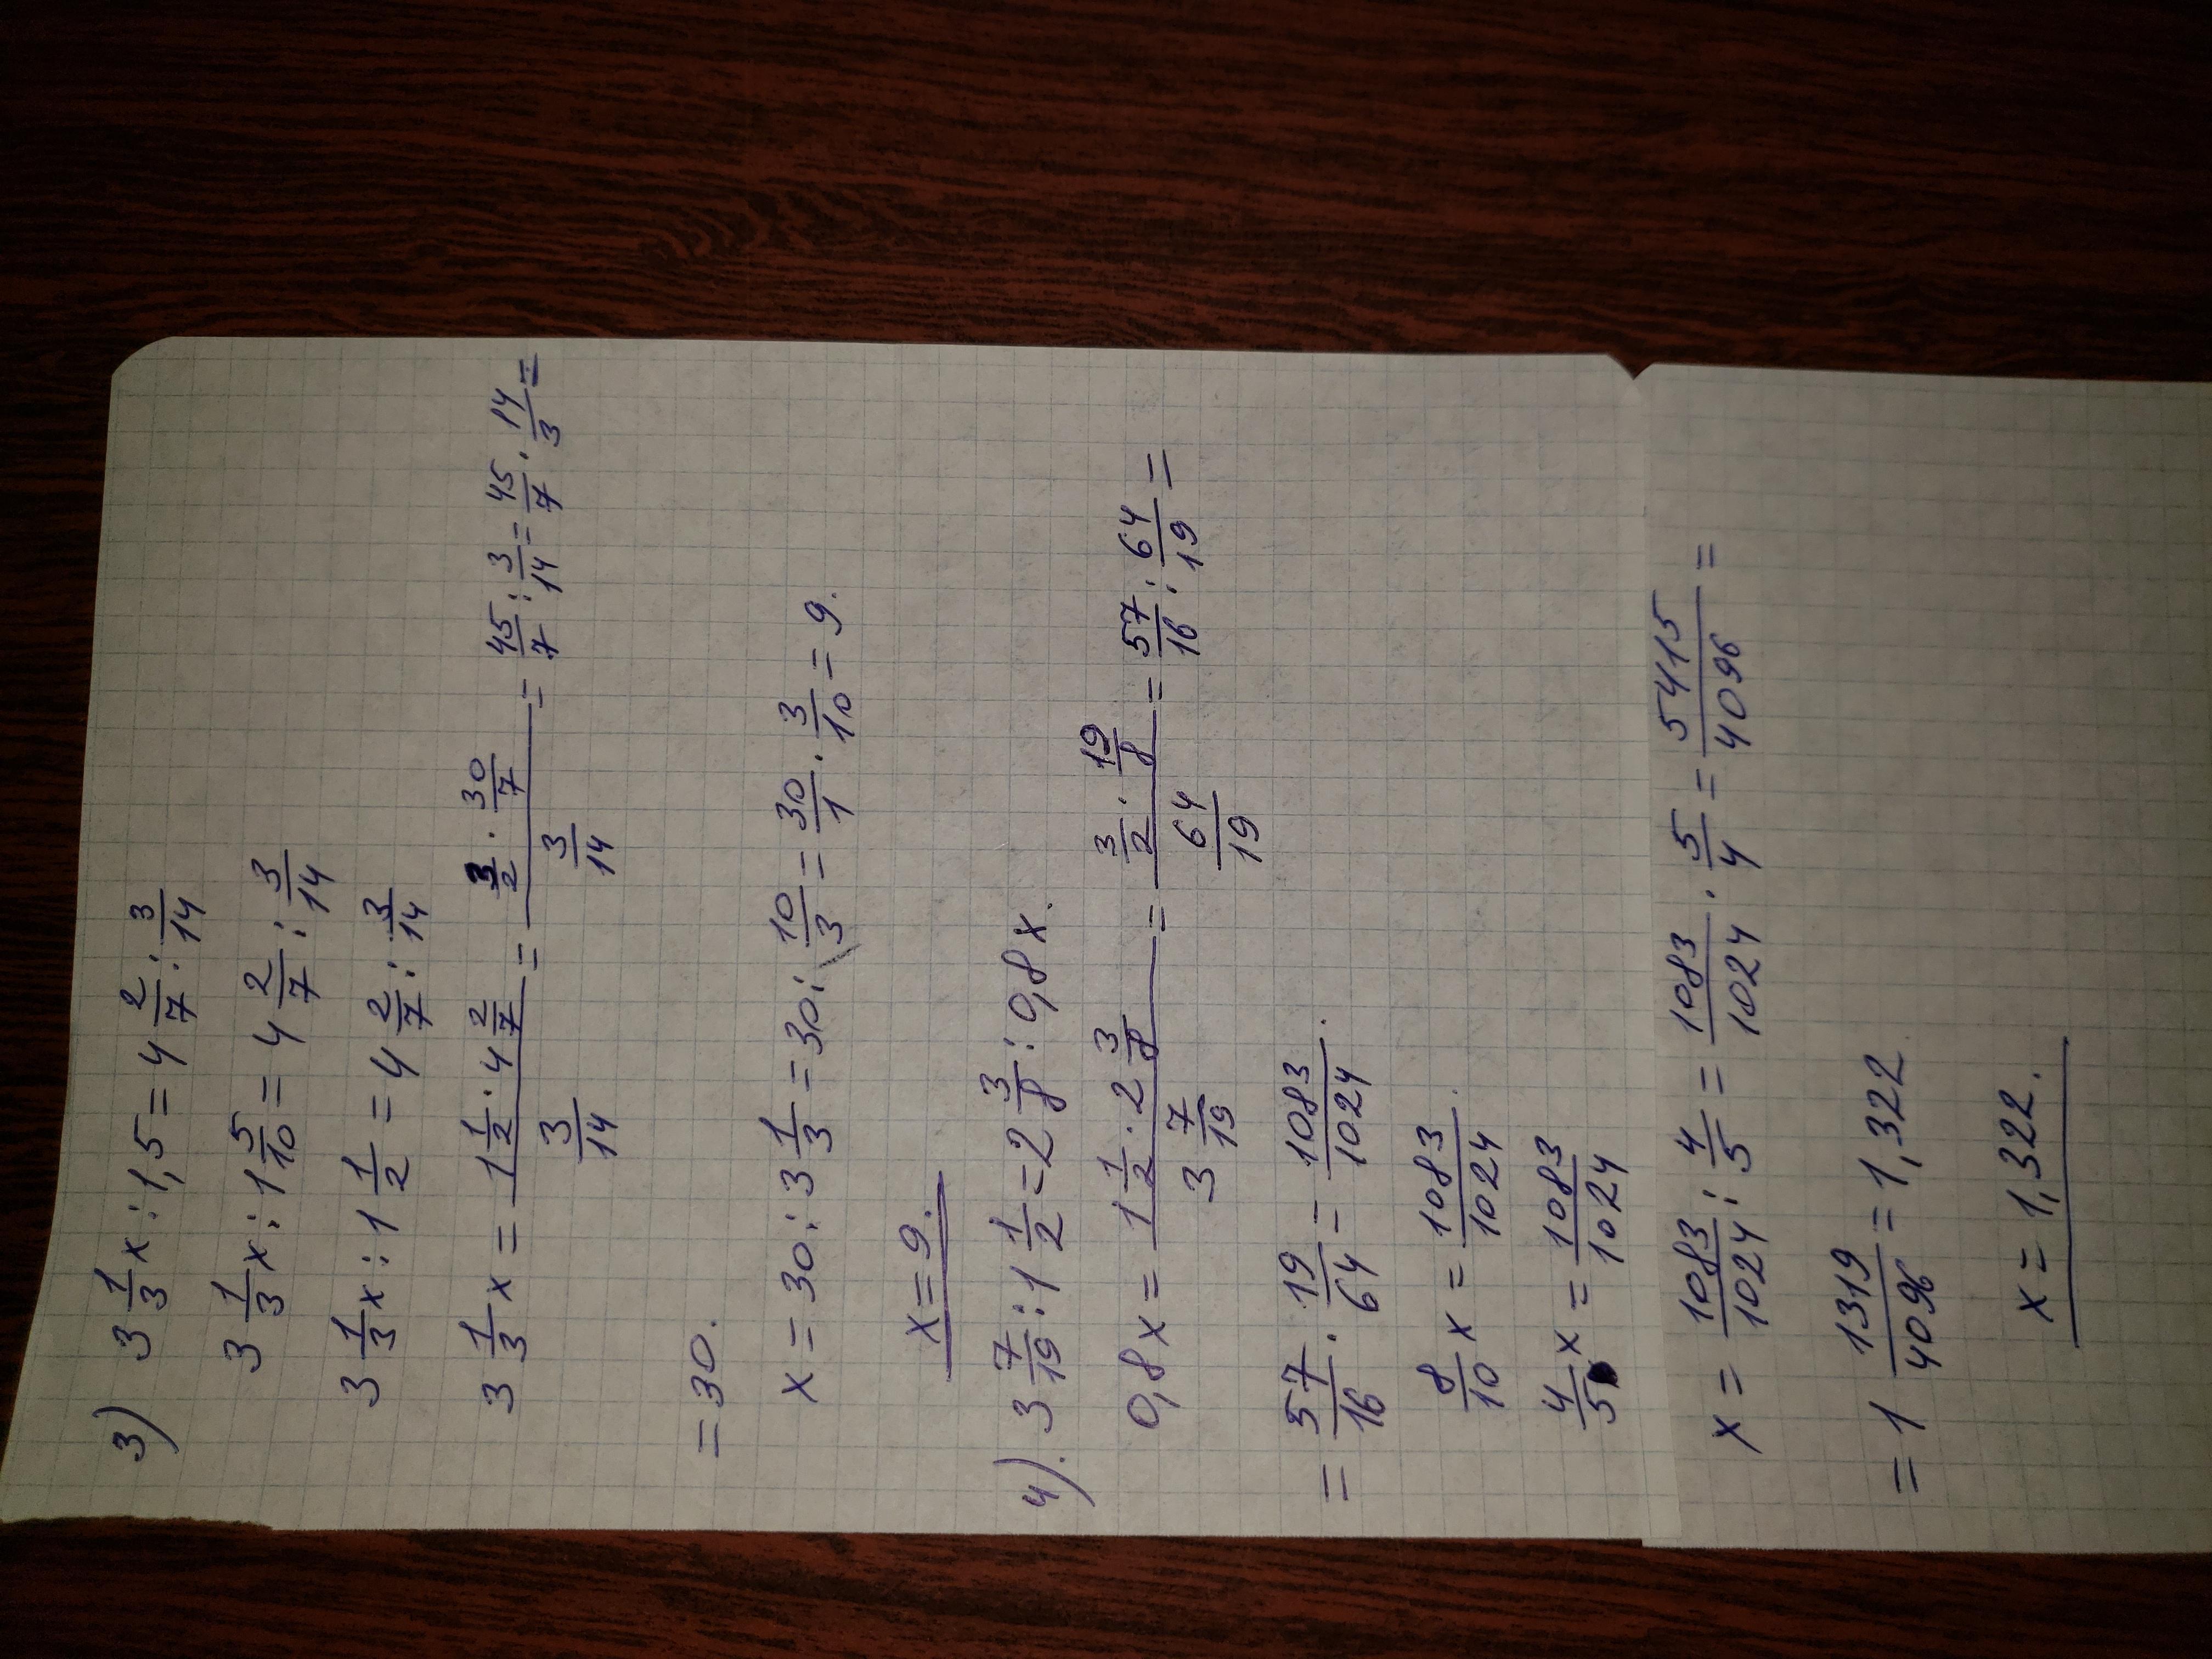 3) 3 1/3 x : 1,5 = 4 2/7 : 3/14
3 1/3 x : 1 5/10 = 4 2/7 : 3/14
3 1/3 x : 1 1/2 = 4 2/7 : 3/14
3 1/3 x = (1 1/2 · 4 2/7)/(3/14) = (3/2 · 30/7)/(3/14) = 45/7 : 3/14 = 45/7 · 14/3 =
= 30.
x = 30 : 3 1/3 = 30 : 10/3 = 30/1 · 3/10 = 9.
x = 9.
4). 3 7/19 : 1 1/2 = 2 3/8 : 0,8x.
0,8x = (1 1/2 · 2 3/8)/(3 7/19) = (3/2 · 19/8)/(64/19) = 57/16 : 64/19 =
= 57/16 · 19/64 = 1083/1024.
8/10 x = 1083/1024.
4/5 x = 1083/1024
x = 1083/1024 : 4/5 = 1083/1024 · 5/4 = 5415/4096 =
= 1 1319/4096 = 1,322
x = 1,322.